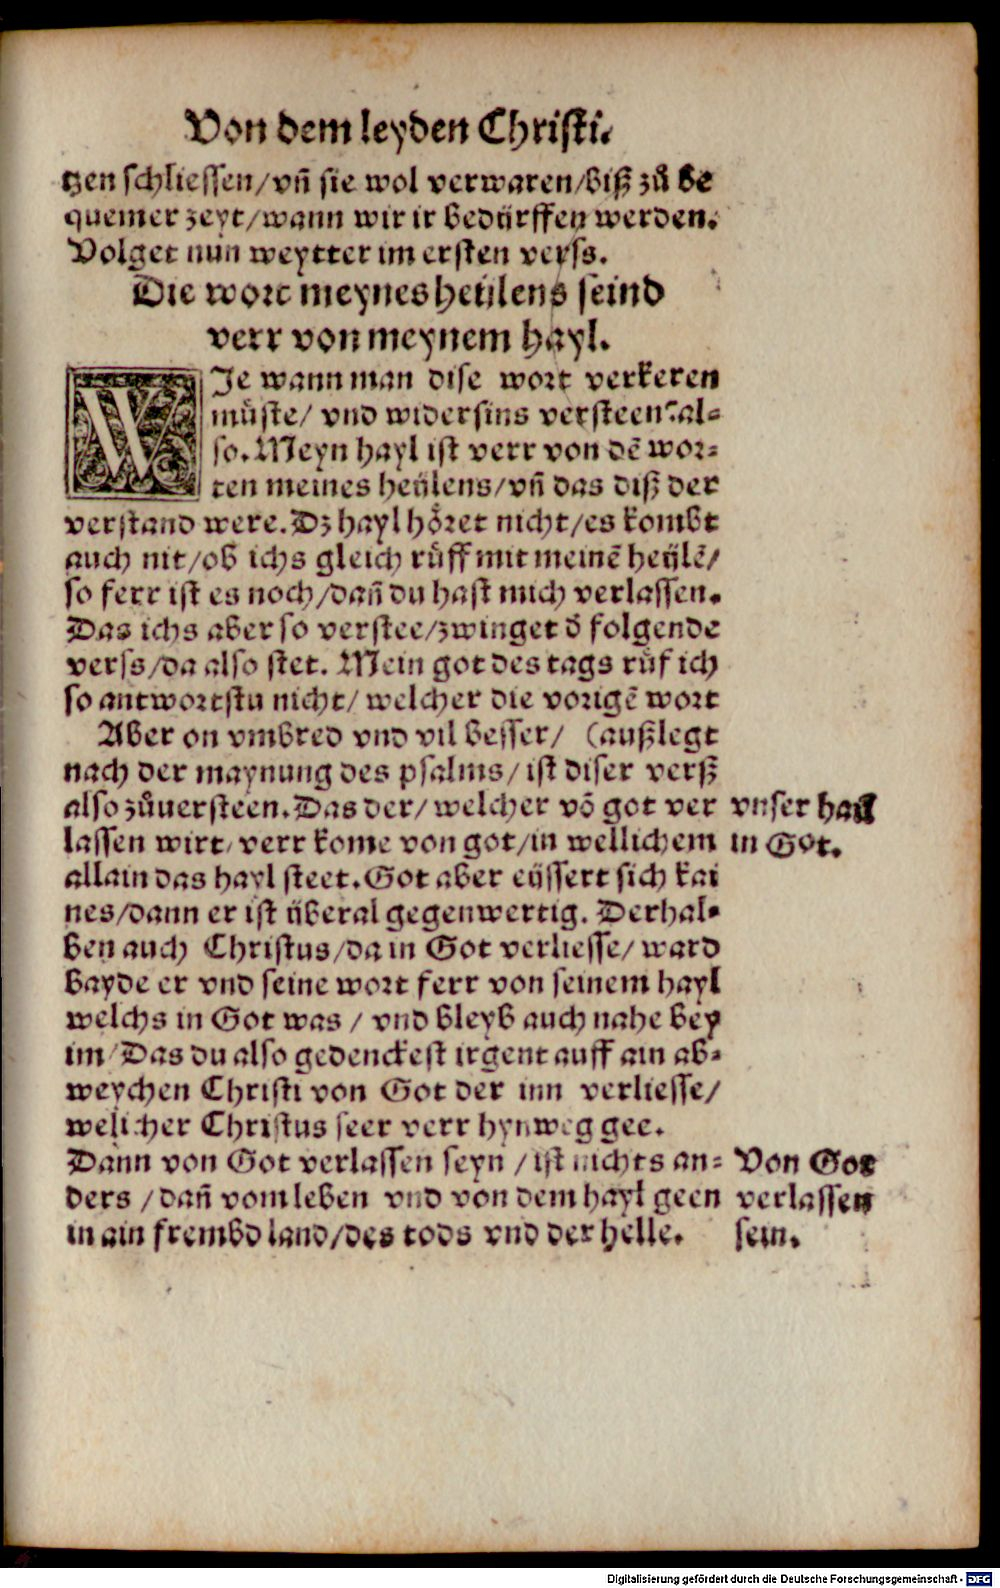 Von dem leyden Christi.
tzen schliessen/vñ sie wol verwaren/biß zů be
quemer zeyt/wann wir ir bedürffen werden.
Volget nun weytter im ersten verss.
Die wort meynes heülens seind
verr von meynem hayl.
WIe wann man dise wort verkeren
müste/ vnd widersins versteen? al⸗
so. Meyn hayl ist verr von dẽ wor⸗
ten meines heülens/vñ das diß der
verstand were. Dz hayl höret nicht/es kombt
auch nit/ob ichs gleich růff mit meinẽ heülẽ/
so ferr ist es noch/dañ du hast mich verlassen.
Das ichs aber so verstee/zwinget ð folgende
verss/da also stet. Mein got des tags růf ich
so antwortstu nicht/ welcher die vorigẽ wort
Aber on vmbred vnd vil besser/ (außlegt
nach der maynung des psalms/ist diser verß
also zůuersteen. Das der/welcher võ got ver
lassen wirt/ verr kome von got/in wellichem
allain das hayl steet. Got aber eüssert sich kai
nes/dann er ist überal gegenwertig. Derhal⸗
ben auch Christus/da in Got verliesse/ ward
bayde er vnd seine wort ferr von seinem hayl
welchs in Got was / vnd bleyb auch nahe bey
im/Das du also gedenckest irgent auff ain ab⸗
weychen Christi von Got der inn verliesse/
welicher Christus seer verr hynweg gee.
Dann von Got verlassen seyn /ist nichts an⸗
ders /dañ vom leben vnd von dem hayl geen
in ain frembd land/des tods vnd der helle.
vnser hail
in Got.
Von Got
verlassen
sein.
Digitalisierung gefördert durch die Deutsche Forschungsgemeinschaft - DFG